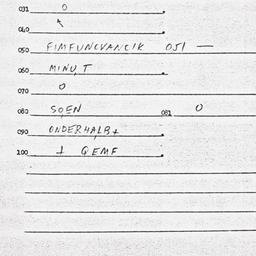 031 0
040
050 FIMFUNCVANCIK 051 —
060 MINU,T
070 0
080 SOEN 081 0
090 ONDERHALB+
100 1 QEMF